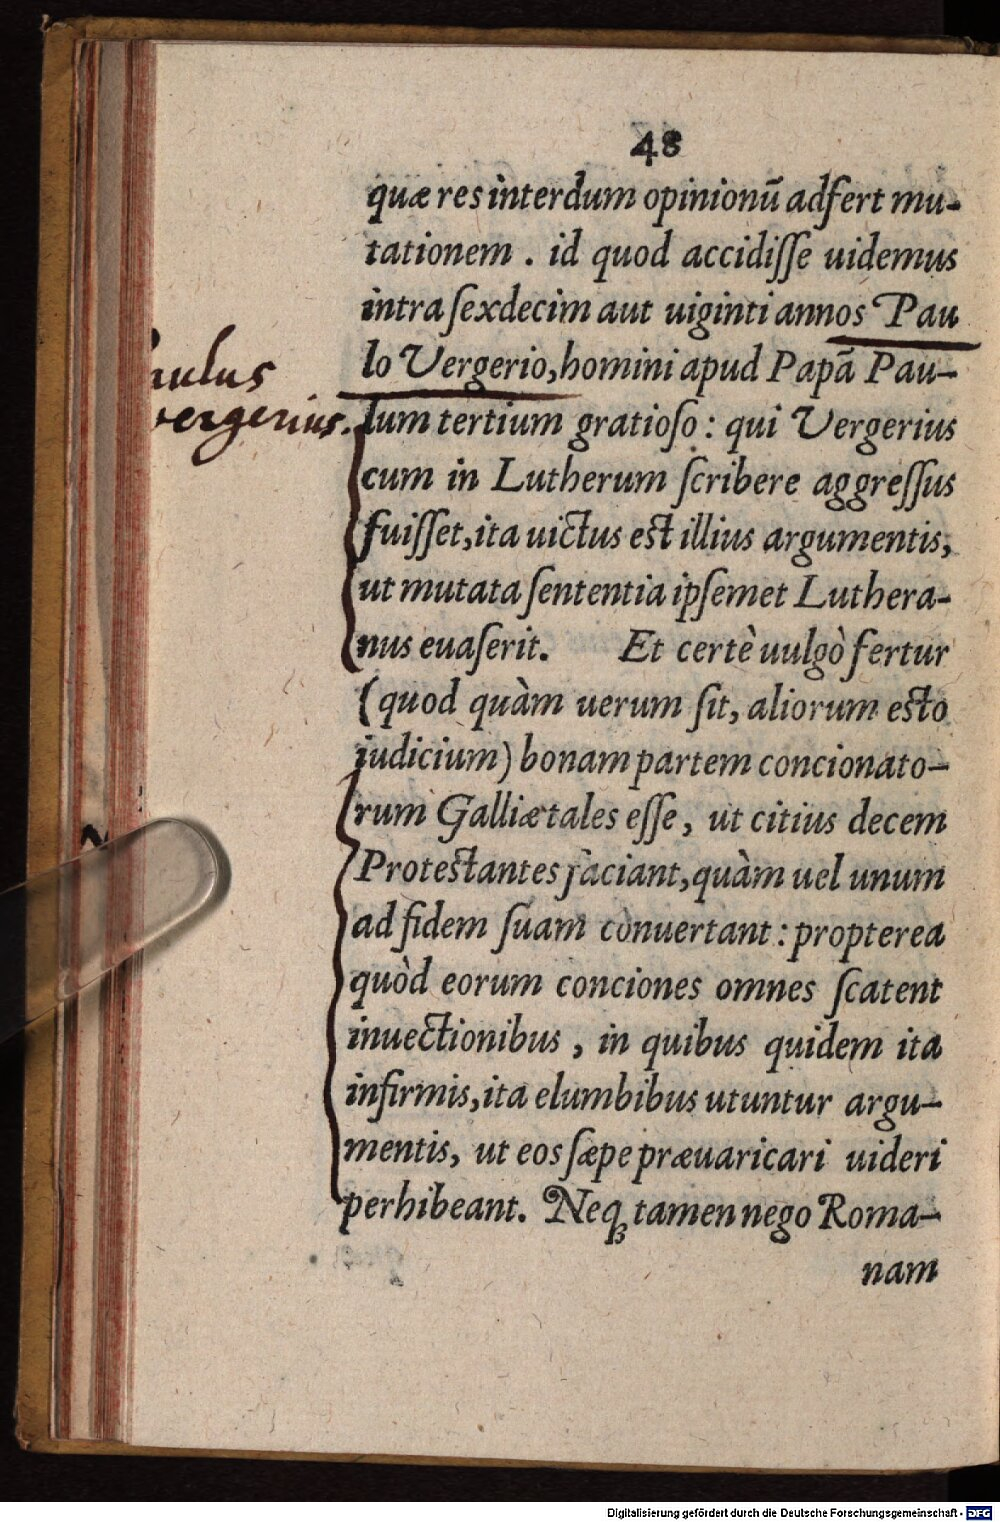 48
quæ res interdum opinionū adfert mu-
tationem . id quod accidiſſe uidemus
intra ſexdecim aut uiginti annos Pau
lo Vergerio, homini apud Papā Pau-
lum tertium gratioſo : qui Vergerius
cum in Lutherum ſcribere aggreſſus
fuiſſet, ita uictus est illius argumentis,
ut mutata ſententia ipſemet Luthera-
nus euaſerit. Et certè uulgò fertur
(quod quàm uerum ſit, aliorum esto
iudicium) bonam partem concionato-
rum Galliæ tales eſſe, ut citius decem
Protestantes faciant, quàm uel unum
ad fidem ſuam conuertant : propterea
quòd eorum conciones omnes ſcatent
inuectionibus , in quibus quidem ita
infirmis, ita elumbibus utuntur argu-
mentis, ut eos ſæpe præuaricari uideri
perhibeant. Neq; tamen nego Roma-
nam
aulus
vergerius.
Digitalisierung gefördert durch die Deutsche Forschungsgemeinschaft - DFG